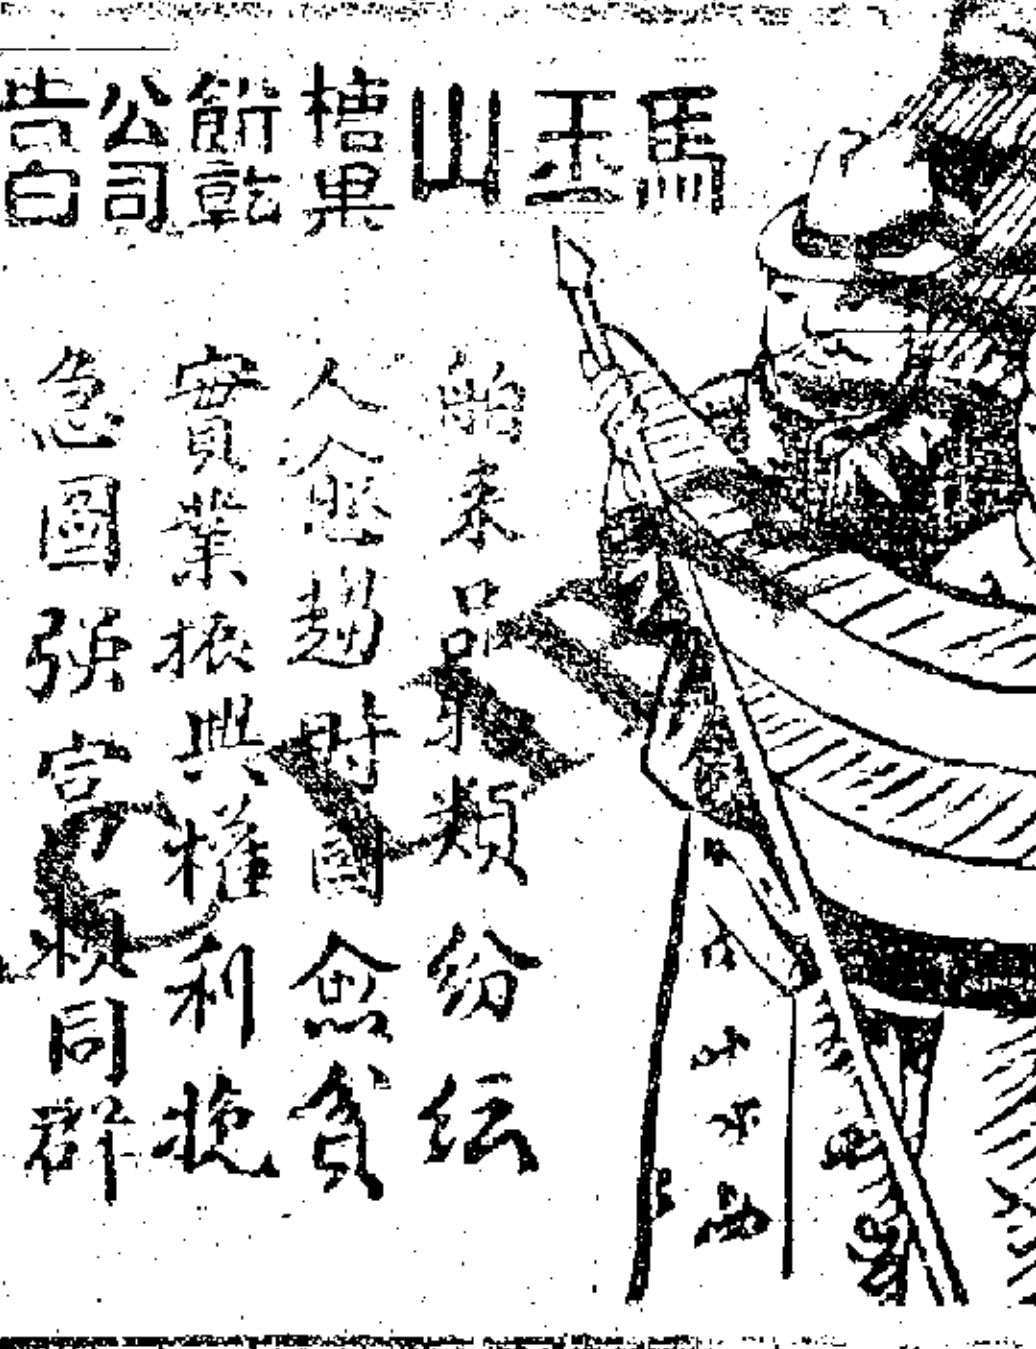 馬玉山槽果餅乾公司告白
舶來品類紛紜
人愈趨時國愈貧
實業振興權利挽
急圖強同群